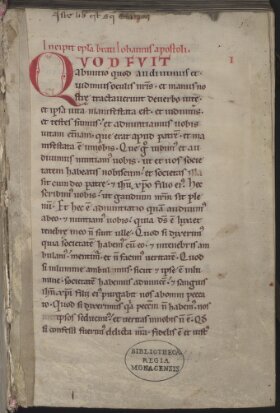 Iste lib est
Incipit epla beati Iohannis apostoli.
QUOD FUIT
ab initio quod audiuimus et
uidimus oculis nris. et manus no
stre tractauerunt de uerbo uite.
et ipsa uita manifestata est. et uidimus.
et testes sumus. et adnuntiamus uobis
uitam eternam. que erat apud patre. et ma
nifestata e nobis. Quod
societate
habeatis nobiscum. et societas
sit cum deo patre. et ihu xpo filio ei. Hec
scribimus uobis. ut gaudium nrm sit ple
nu. Et hec e adnuntiatio qua audiuim
ab eo. et nuntiam uobis. qm ds
tenebre in eo n sunt ulle. Si dixerim
qm societate habem cu eo. et in tenebris am
bulam. mentimur. et n facim ueritate.
si in lumine ambulam sicut et ipse e in lu
mine. societate habemus adinuice. et sanguis
ihu xpi filii ei purgabit nos ab omni pecca
to. Quod si dixerim qm peccm n habem. nos
ipsos seducim. et ueritas in nobis n e.
si confessi fuerim delicta nra. fidelis e et iust
BIBLIOTHECA
REGIA
MONACENSIS